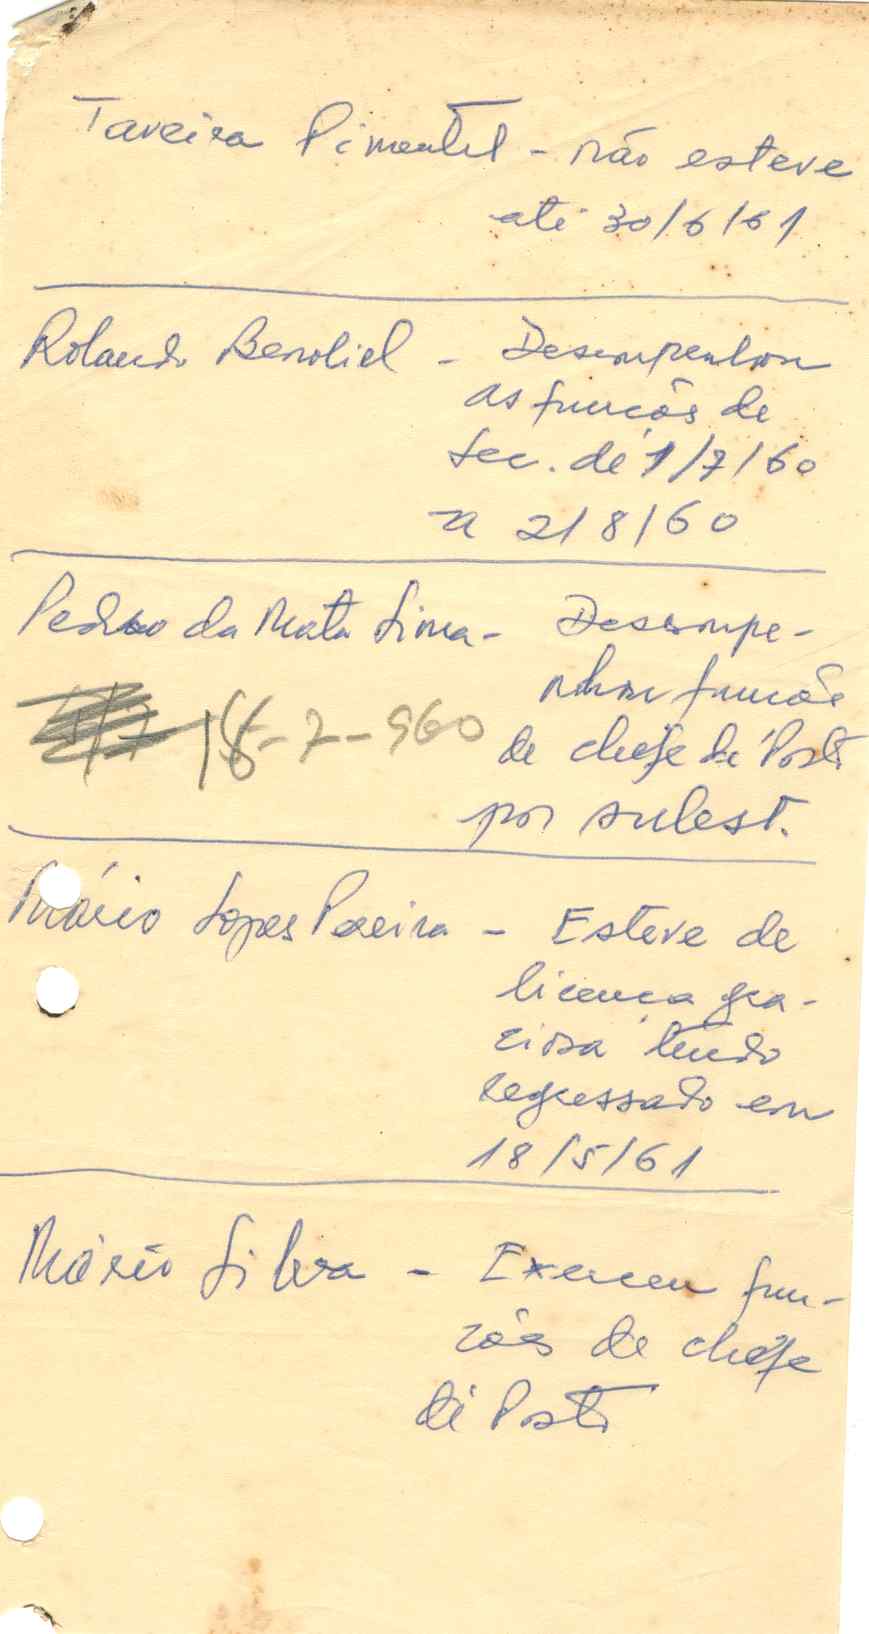 Taveira Pimentel - não esteve
até 30/6/61
Rolando Benoliel - Desempenhou
as funções de
Sec. de 1/7/60
a 2/8/60
Pedro da Mata Lima - Desempe-
nhou funções
de chefe de Posto
18-7-960
por subst.
Mário Lopes Pereira - Esteve de
licença gra-
ciosa tendo
regressado em
18/5/61
Mário Silva - Exerceu fun-
ções de chefe
de Posto